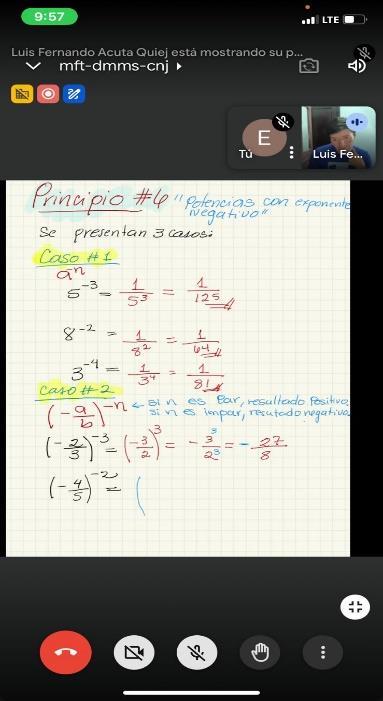 9:57
LTE
Luis Fernando Acuta Quiej está mostrando su p...
mft-dmms-cnj
E
Tú
Luis Fe...
Principio #6 "Potencias con exponente
negativo"
Se presentan 3 casos:
Caso #1
aⁿ
5⁻³ = 1/5³ = 1/125
8⁻² = 1/8² = 1/64
3⁻⁴ = 1/3⁴ = 1/81
Caso #2
(-a/b)⁻ⁿ ← si n es Par, resultado Positivo,
si n es impar, resutado negativo.
(-2/3)⁻³ = (-3/2)³ = -3³/2³ = -27/8
(-4/5)⁻² = (